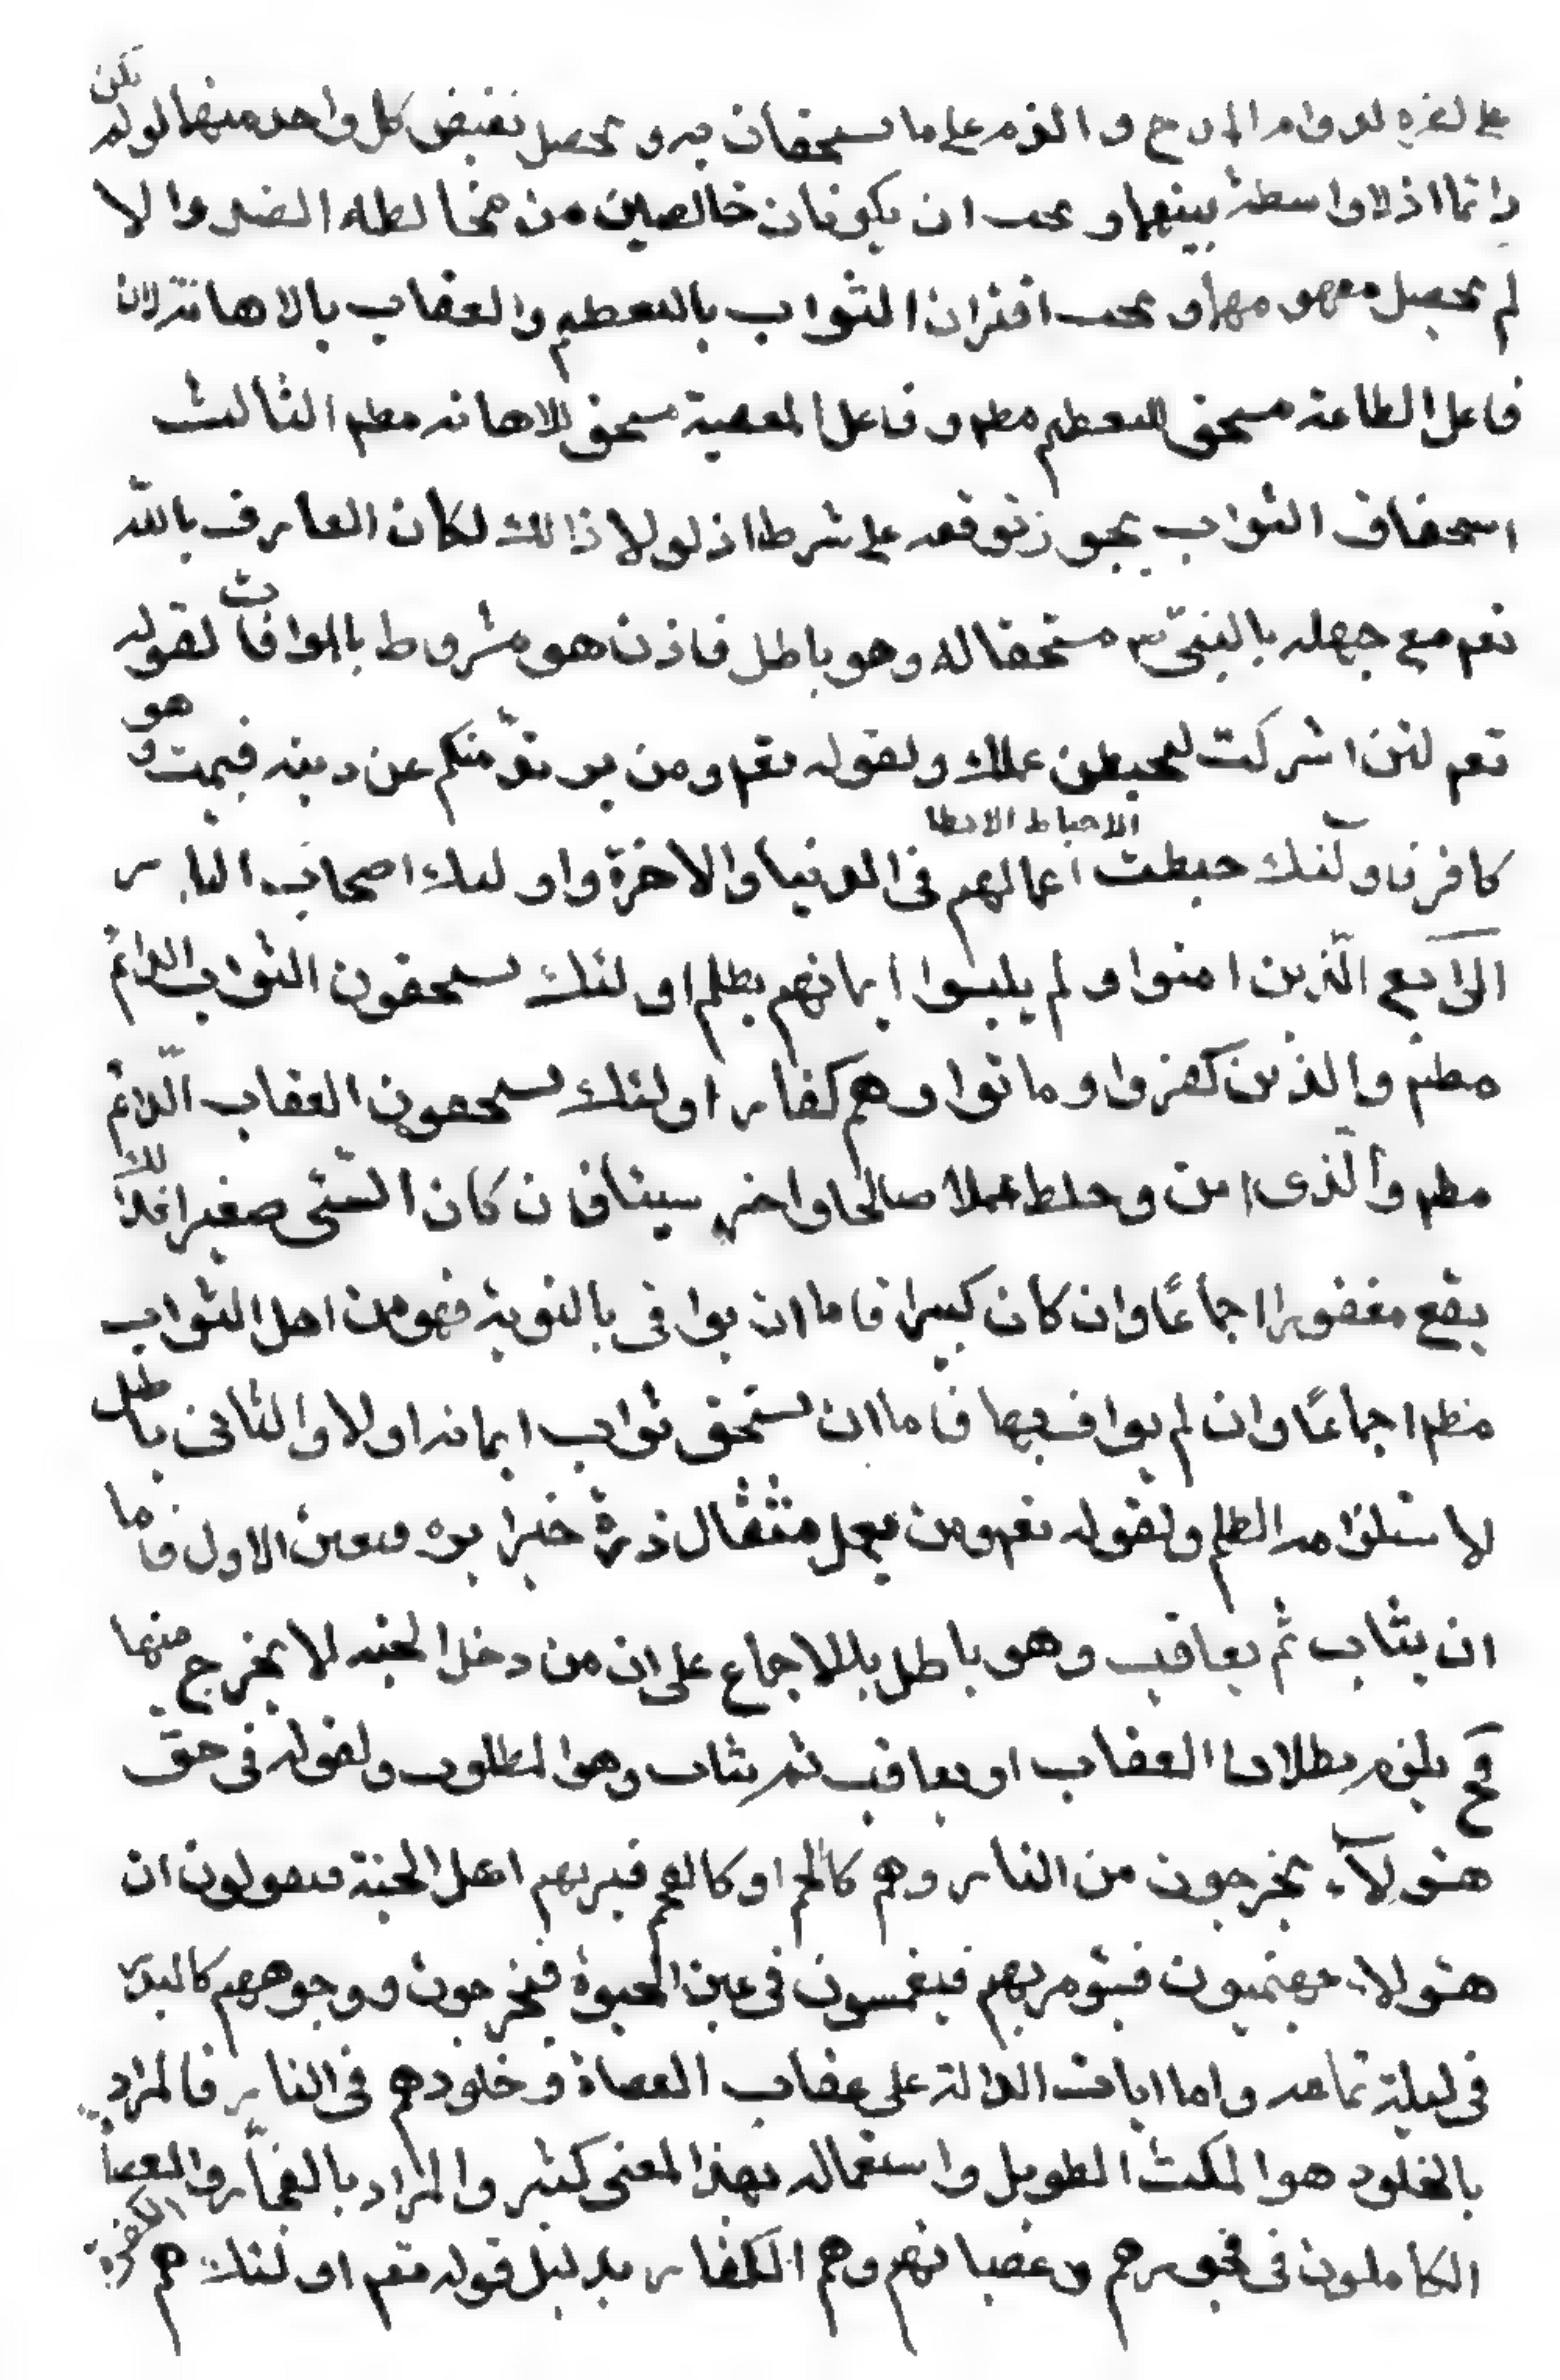 على لغيره لدوام المدح و الذم على ما يستحقان به و يحصل نقيض كل واحد منهما لو لم يكن
دائما اذ لا واسطة بينهما و يجب ان يكونان خالصين من مخالطة الضد والا
لم يحصل مفهومهما و يجب اقتران الثواب بالتعظيم والعقاب بالاهانة لان
فاعل الطاعة مستحق للتعظيم مطم و فاعل المعصية مستحق للاهانه مطم الثالث
استحقاق الثواب يجوز توقفه على شرط اذ لولا ذالك لكان العارف بالله
تعم مع جهله بالنبى ص مستحقا له و هو باطل فاذن هو مشروط بالموافات لقوله
تعم لئن اشركت ليحبطن عملك ولقوله تعم و من يرتدّ منكم عن دينه فيمت و هو
الاحباط الابطا
كافر فاولئك حبطت اعمالهم فى الدنيا والاخرة واولئك اصحاب النار
الرابع الّذين امنوا و لم يلبسوا ايمانهم بظلم اولئك يستحقون الثواب الدائم
مطم والذين كفروا و ماتوا وهم كفار اولئك يستحقون العقاب الدائم
مطم والّذى امن و خلط عملا صالحا واخر سيئا فان كان السّئى صغيرا فذلك
يقع مغفورا اجماعًا وان كان كبيرا فاما ان يوافى بالتوبة فهو من اهل الثواب
مطم اجماعًا وان لم يواف بها فاما ان يستحق ثواب ايمانه اولا والثانى باطل
لاستلزامه الظلم ولقوله تعم ومن يعمل مثثقال ذرة خيرا يره فتعين الاول فاما
ان يثاب ثم يعاقب وهو باطل باللاجماع على ان من دخل الجنه لا يخرج منها
فح يلزم بطلان العقاب او يعاقب ثم يثاب وهو المطلوب ولقوله فى حقّ
هئولآء يخرجون من النار وهم كالحم او كالفحم فيريهم اهل الجنة فيقولون ان
هئولاء جهنميون فيئومر بهم فيغمسون فى عين الحيوة فيخرجون ووجوههم كالبدر
فى ليلة تمامه واما ايات الدالة على عقاب العصاة و خلودهم فى النار فالمراد
بالخلود هو المكث الطويل واستعماله بهذا المعنى كثير والمراد بالفجّار والعصاة
الكاملون فى فجورهم و عصيانهم وهم الكفار بدليل قوله تعم اولئك هم الكفرة